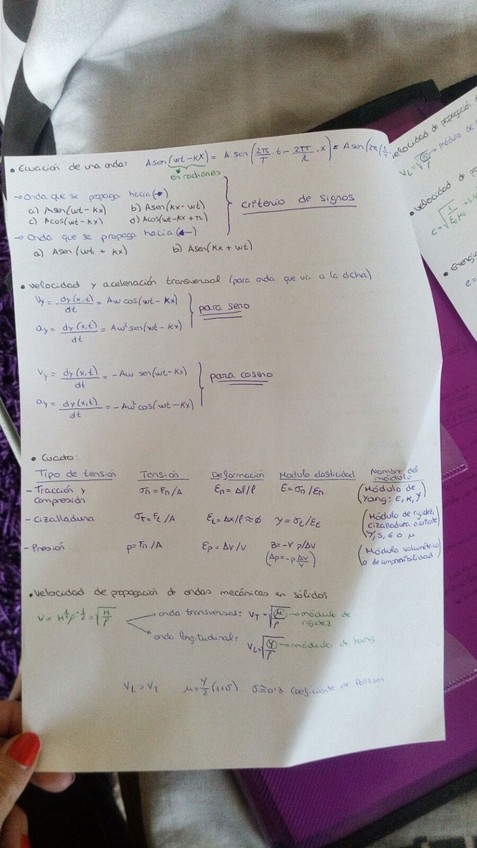 • Ecuación de una onda: A sen(wt - kx) = A sen(2π/T · t - 2π/λ · x) = A sen(2π(
en radianes
→ Onda que se propaga hacia (→)
a) A sen(wt - kx) b) A sen(kx - wt)
c) A cos(wt - kx) d) A cos(wt - kx + π)
criterio de signos
→ Onda que se propaga hacia (←)
a) A sen(wt + kx) b) A sen(kx + wt)
• Velocidad y aceleración transversal (para onda que va a la dcha)
Vy = dy(x,t)/dt = Aw cos(wt - kx)
para seno
ay = dy(x,t)/dt = Aw² sen(wt - kx)
Vy = dy(x,t)/dt = -Aw sen(wt - kx)
para coseno
ay = dy(x,t)/dt = -Aw² cos(wt - kx)
• Cuadro:
Tipo de tensión Tensión Deformación Modulo elasticidad Nombre del módulo
- Tracción y compresión σn = Fn/A En = Δl/l E = σn/En (Módulo de Yang: E, K, Y)
- Cizalladura σt = Ft/A Et = Δx/l ≈ ø Y = σt/Et (Módulo de rigidez, cizalladura
- Presión p = Fn/A Ep = ΔV/V B = -V p/ΔV (Δp = -p ΔV/V) (Módulo volumétrico o de compresibilidad)
• Velocidad de propagación de ondas mecánicas en sólidos
onda transversal: VT = √μ/ρ → módulo de rigidez
onda longitudinal: VL = √Y/ρ → módulo de Yang
VL > VT μ = Y/2(1+σ) coeficiente de Poisson
velocidad de propagación
• velocidad de
• Energía